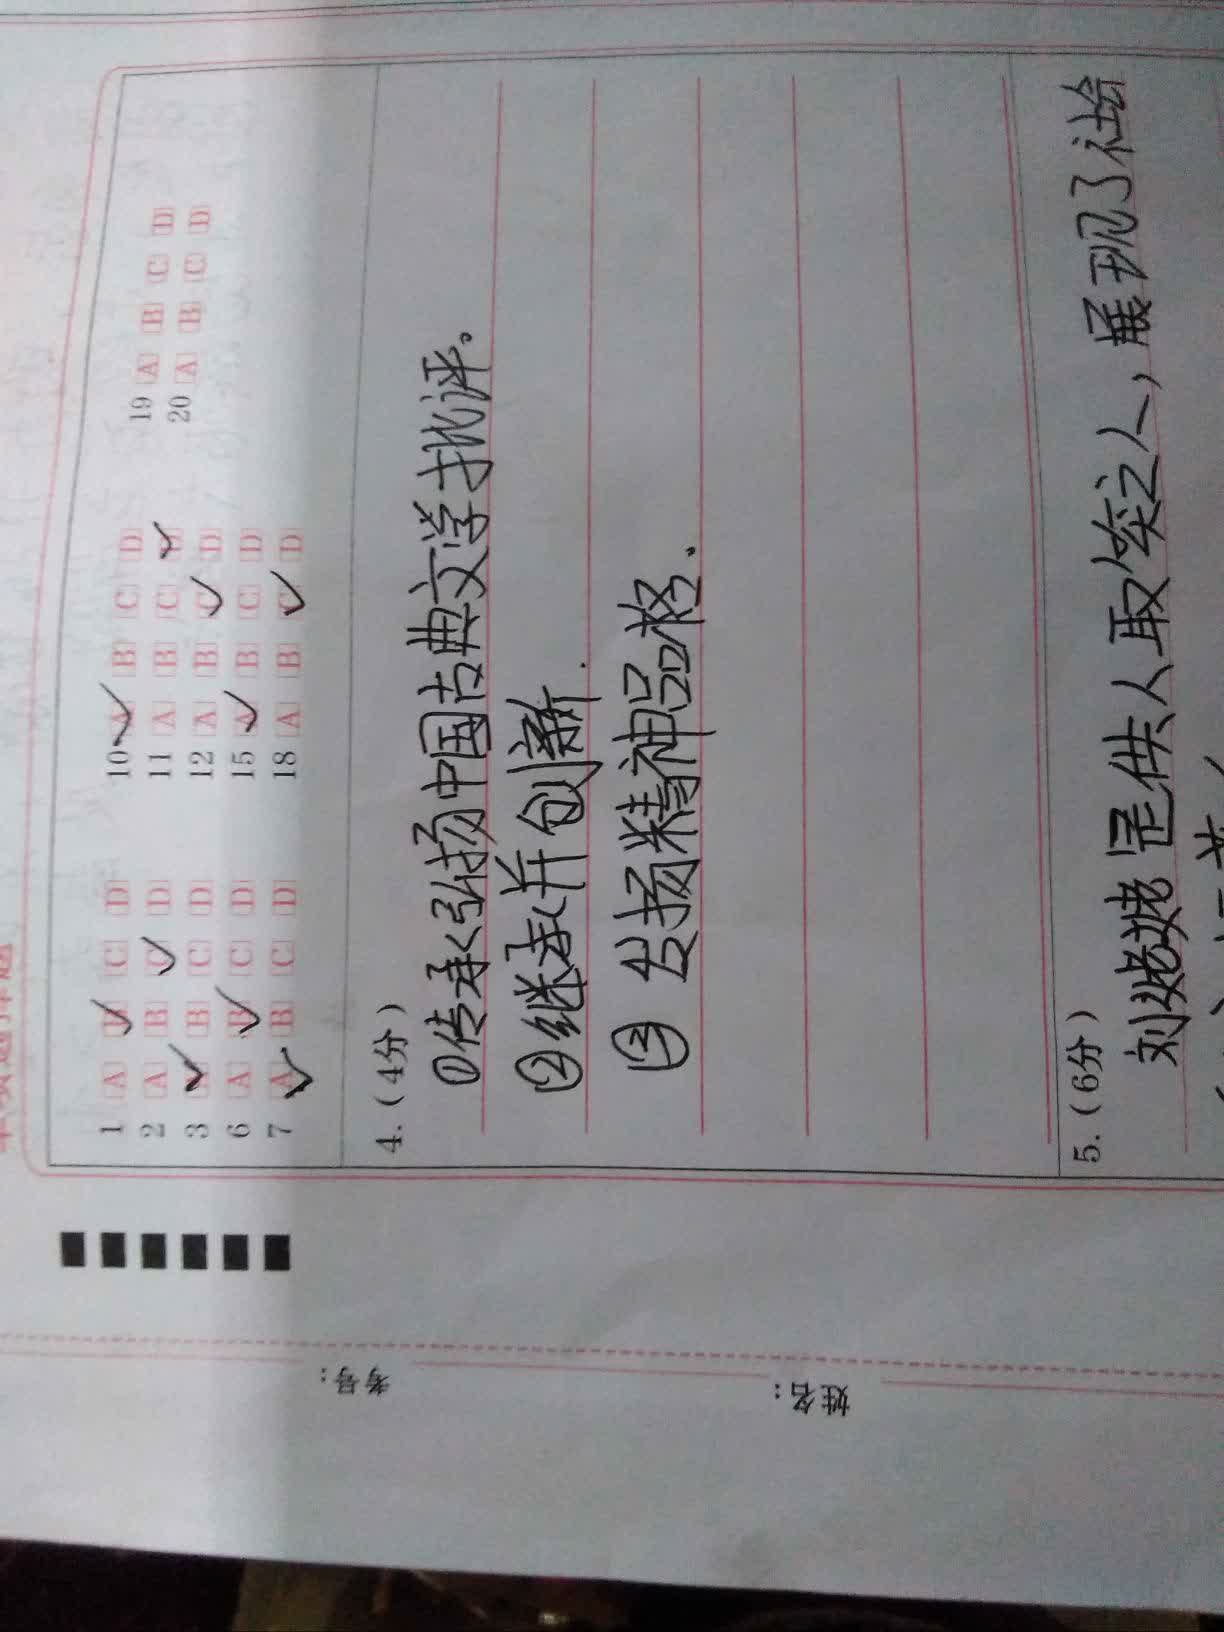 1 A B C D
2 A B C D
3 B C D
6 A B C D
7 A B C D
10 A B C D
11 A B C D
12 A B C D
15 A B C D
18 A B C D
19 A B C D
20 A B C D
4.（4分）
①传承弘扬中国古典文学批评。
②继承并创新.
③发扬精神品格.
5.（6分）
刘姥姥是供人取笑之人，展现了社会
考号：
姓名：